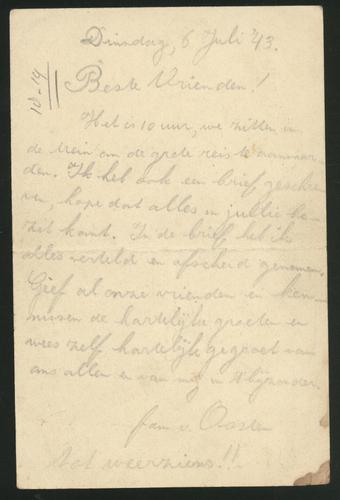 Dinsdag, 6 Juli '43.
10-14
Beste Vrienden!
Het is 10 uur, we zitten in
de trein om de grote reis te aanvaar-
den. Ik heb ook een brief geschre-
ven, hope dat alles in jullie be-
zit komt. In de brief heb ik
alles verteld en afscheid genomen.
Geef al onze vrienden en ken-
nissen de hartelijke groeten en
wees zelf hartelijk gegroet van
ons allen en van mij in 't bijzonder.
fam v. Oosten
tot weerziens!!